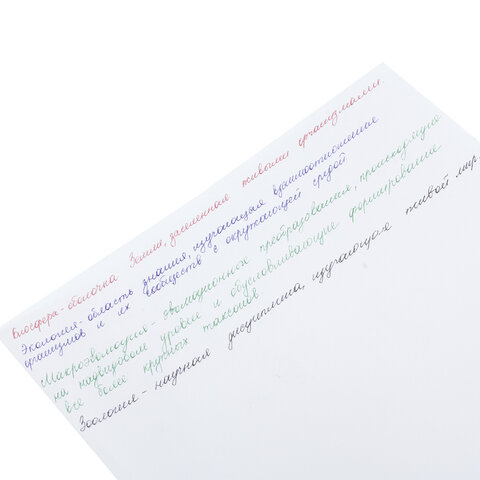 Биосфера - оболочка Земли, заселенная живыми организмами.
Экология - область знания, изучающая взаимоотношения
организмов и их сообществ с окружающей средой.
Макроэволюция - эволюционные преобразования, происходящие
на надвидовом уровне и обуславливающие формирование
все более крупных таксонов
Зоология - научная дисциплина, изучающая живой мир.